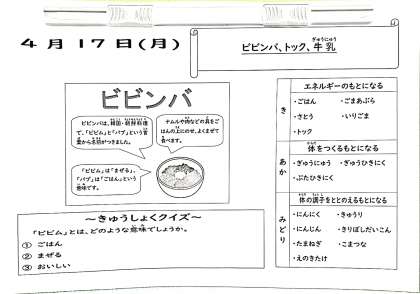 4月17日(月)
ぎゅうにゅう
ビビンバ、トック、牛乳
ビビンバ
ビビンバは、韓国・朝鮮料理
で、「ビビム」と「パプ」という言
葉から名前がつきました。
ナムルや肉などの具をご
はんの上にのせ、よくまぜて
食べます。
「ビビム」は「まぜる」、
「パプ」は「ごはん」という
意味です。
～きゅうしょくクイズ～
「ビビム」とは、どのような意味でしょうか。
① ごはん
② まぜる
③ おいしい
き
エネルギーのもとになる
・ごはん ・ごまあぶら
・さとう ・いりごま
・トック
あか
体をつくるもとになる
・ぎゅうにゅう ・ぎゅうひきにく
・ぶたひきにく
みどり
体の調子をととのえるもとになる
・にんにく ・きゅうり
・にんじん ・きりぼしだいこん
・たまねぎ ・こまつな
・えのきたけ